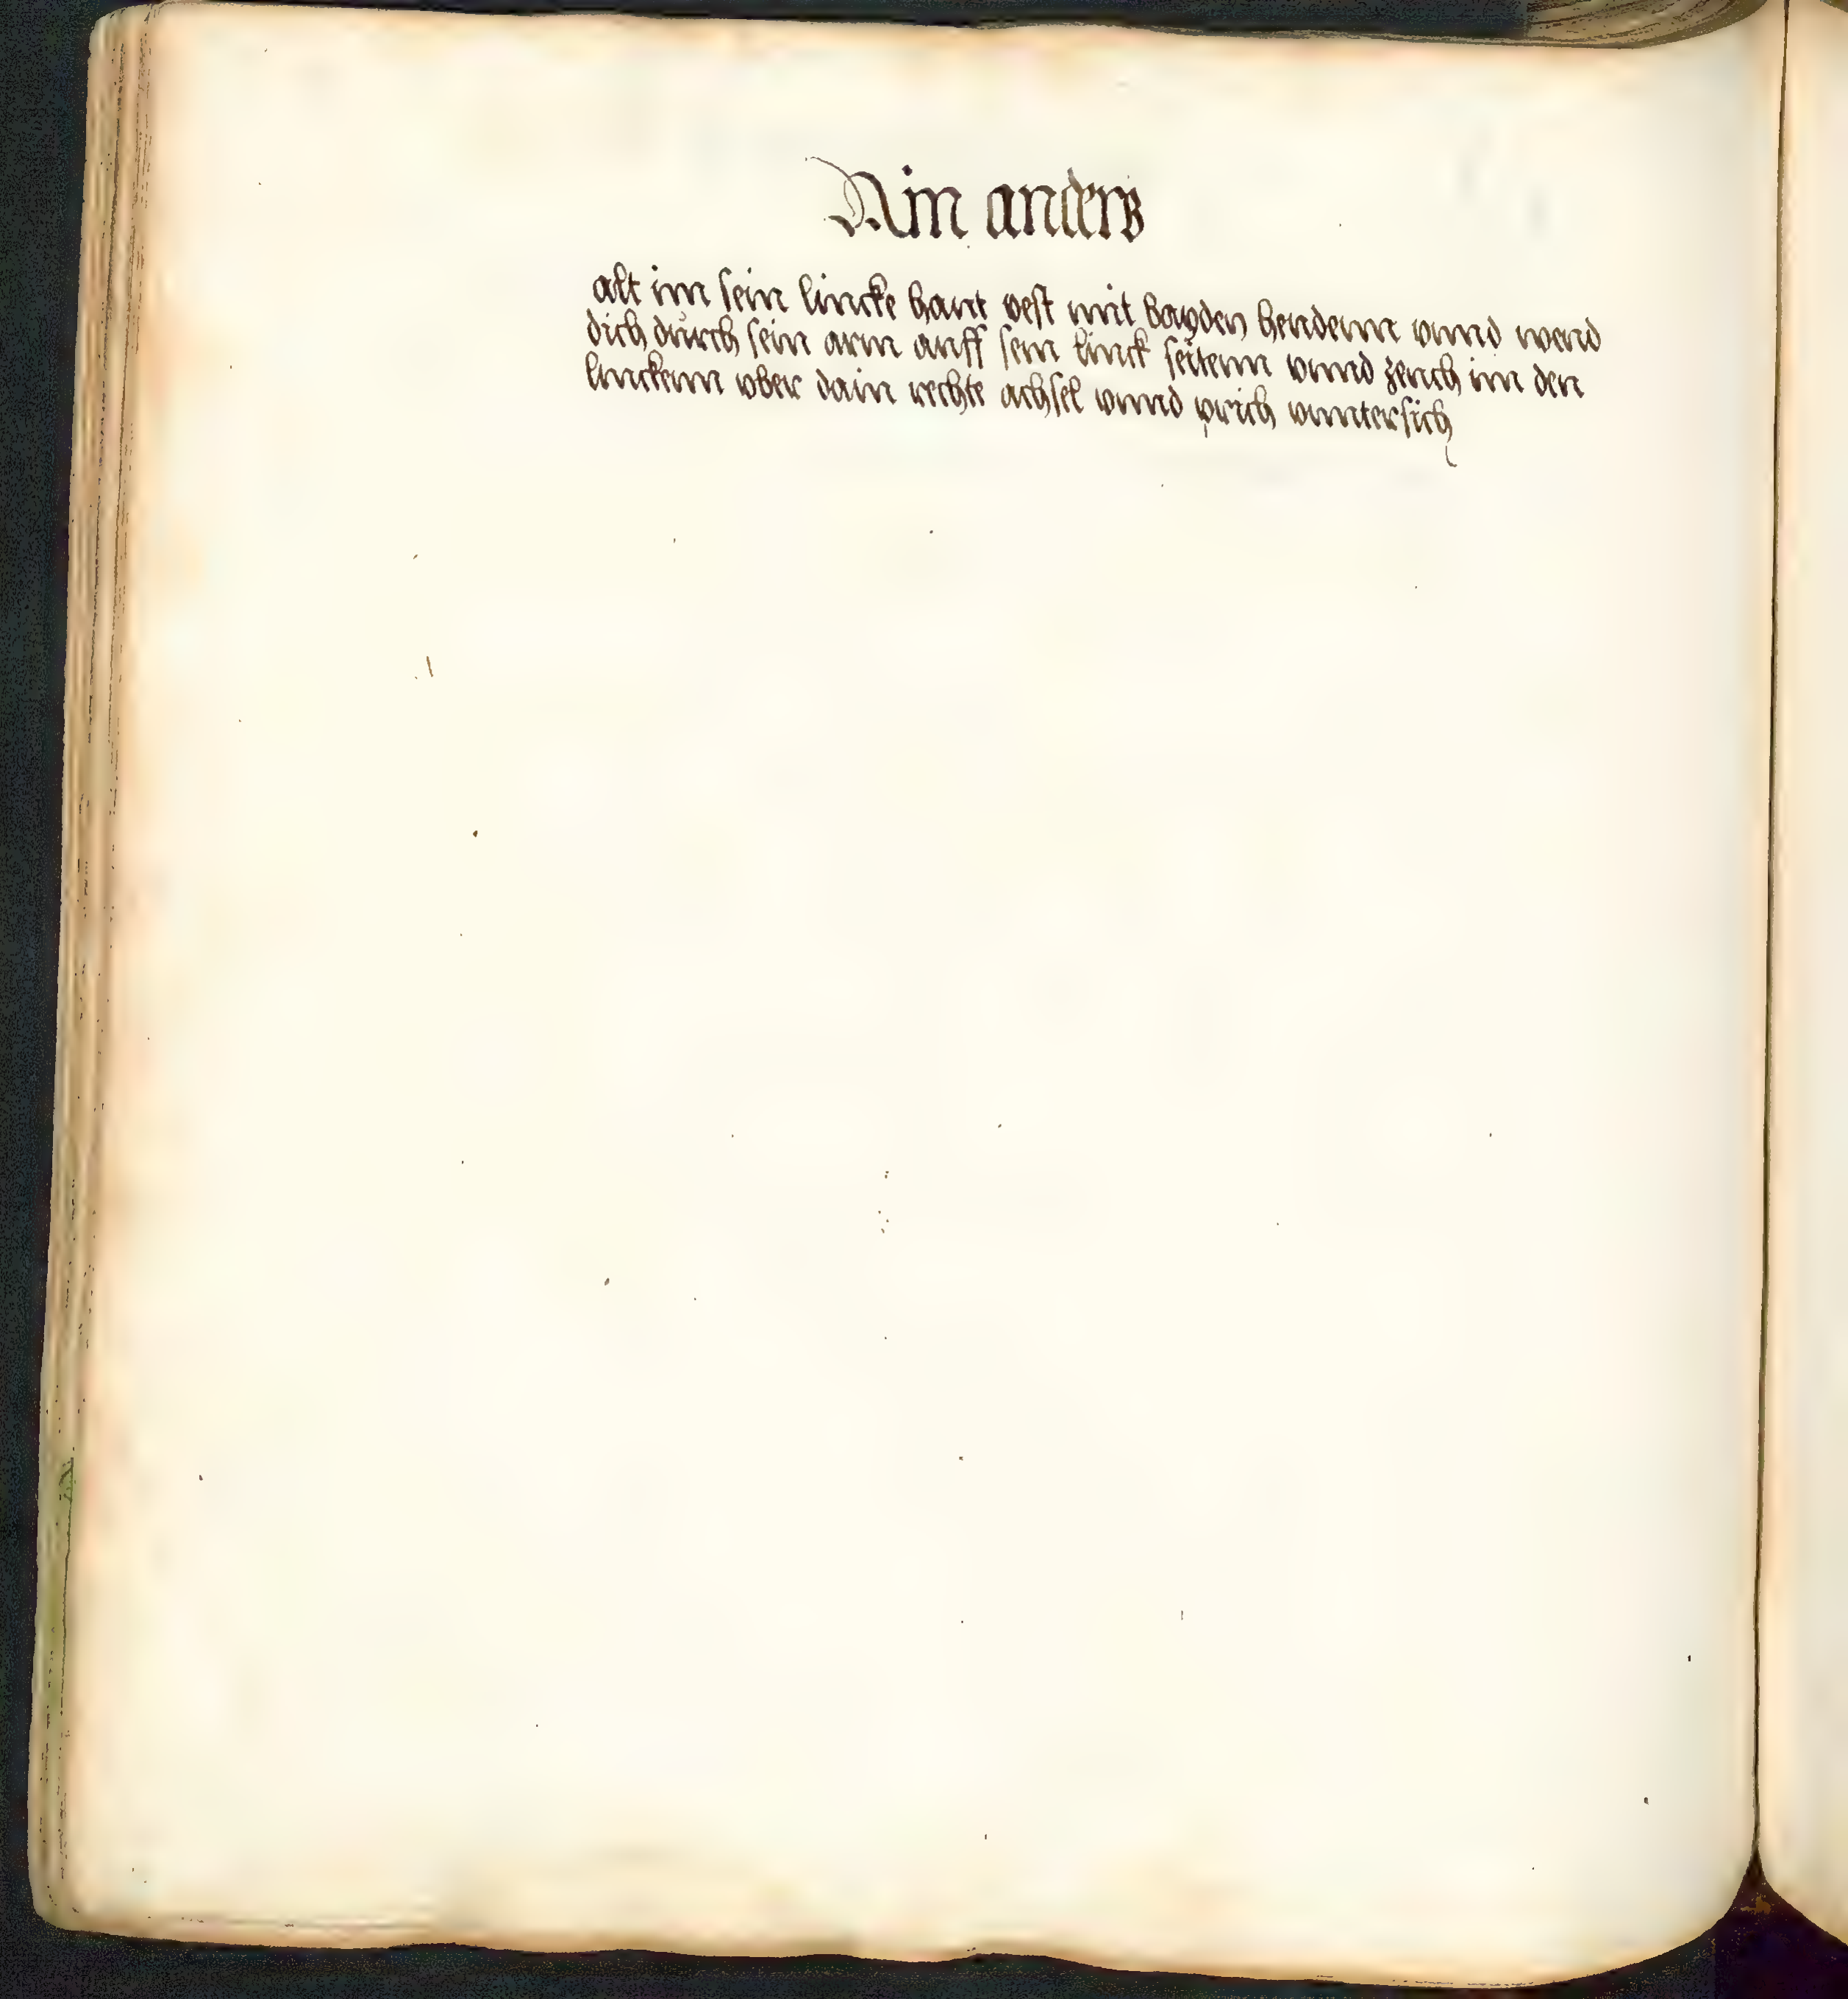 Ain anders
alt im sein lincke hant vest mit bayden hendenn vnnd wend
dich durch sein arm auff sein linck seitenn vnnd zeuch im den
linckenn vber dain rechte achsel vnnd prich vnntersich